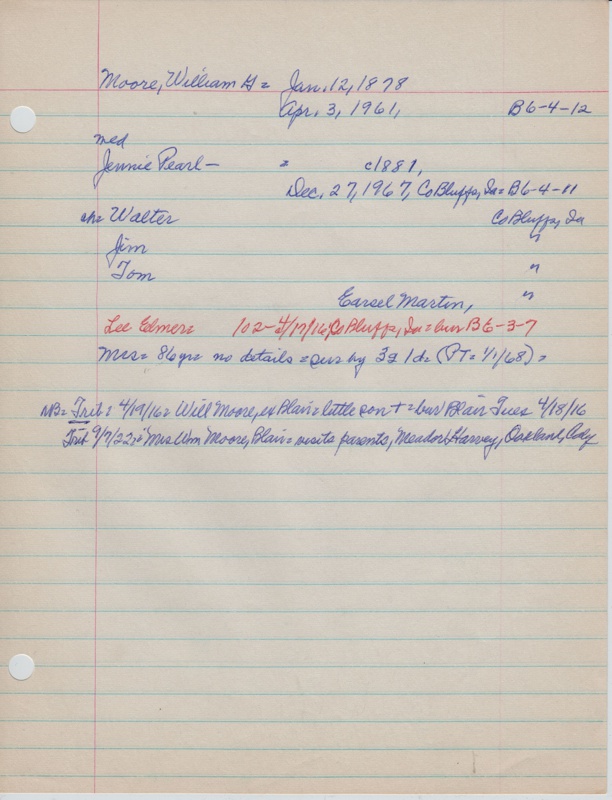 Moore, William H = Jan. 12, 1878
Apr. 3, 1961, B6-4-12
med
Jennie Pearl - = c1881,
Dec. 27, 1967, Co Bluffs, Ia = B6-4-11
ch = Walter Co Bluffs, Ia
Jim "
Tom "
Earsel Martin, "
Lee Elmer = 102 - 4/17/16, Co Bluffs, Ia = bur B6-3-7
Mrs = 86 yrs = no details = sur by 3s 1d = (PT = 1/1/68) =
NB = Trib = 4/19/16 = Will Moore, ex Blair = little son + = bur Blair Tues 4/18/16
Trib 9/7/22 = Mrs Wm Moore, Blair = visits parents, Meador Harvey, Oakland,